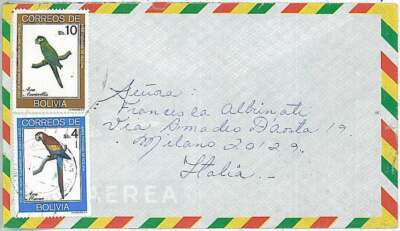 CORREOS DE
Bs. 10
BOLIVIA
CORREOS DE
Bs. 4
BOLIVIA
Señora:
Francesca Albinati
Via Amadeo D'Aosta 19.
Milano 20129.
Italia.
AEREA